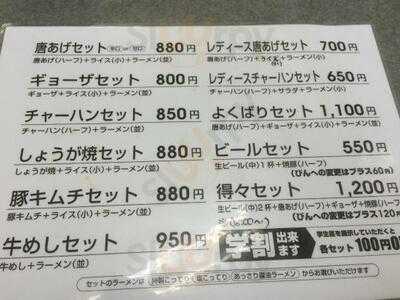 唐あげセット 辛口 or 甘口 880円
唐あげ(ハーフ)+ライス(小)+ラーメン(並)
ギョーザセット 800円
ギョーザ+ライス(小)+ラーメン(並)
チャーハンセット 850円
チャーハン(ハーフ)+ラーメン(並)
しょうが焼セット 880円
しょうが焼+ライス(小)+ラーメン(並)
豚キムチセット 880円
豚キムチ+ライス(小)+ラーメン(並)
牛めしセット 950円
牛めし+ラーメン(並)
レディース唐あげセット 700円
唐あげ(ハーフ)+ライス(小)+ラーメン(小)
レディースチャーハンセット 650円
チャーハン(ハーフ)+サラダ+ラーメン(小)
よくばりセット 1,100円
唐あげ(ハーフ)+ギョーザ+ライス(小)+ラーメン(並)
ビールセット 550円
生ビール(中)1杯+焼豚(ハーフ)
(びんへの変更はプラス60円)
得々セット 1,200円
生ビール(中)2杯+唐あげ(ハーフ)+ギョーザ+焼豚(ハーフ)
(びんへの変更はプラス120円
学割 出来ます 学生証を提示していただくと
各セット100円
セットのラーメンは 特製こってり 塩こってり あっさり醤油ラーメン からお選びいただけます